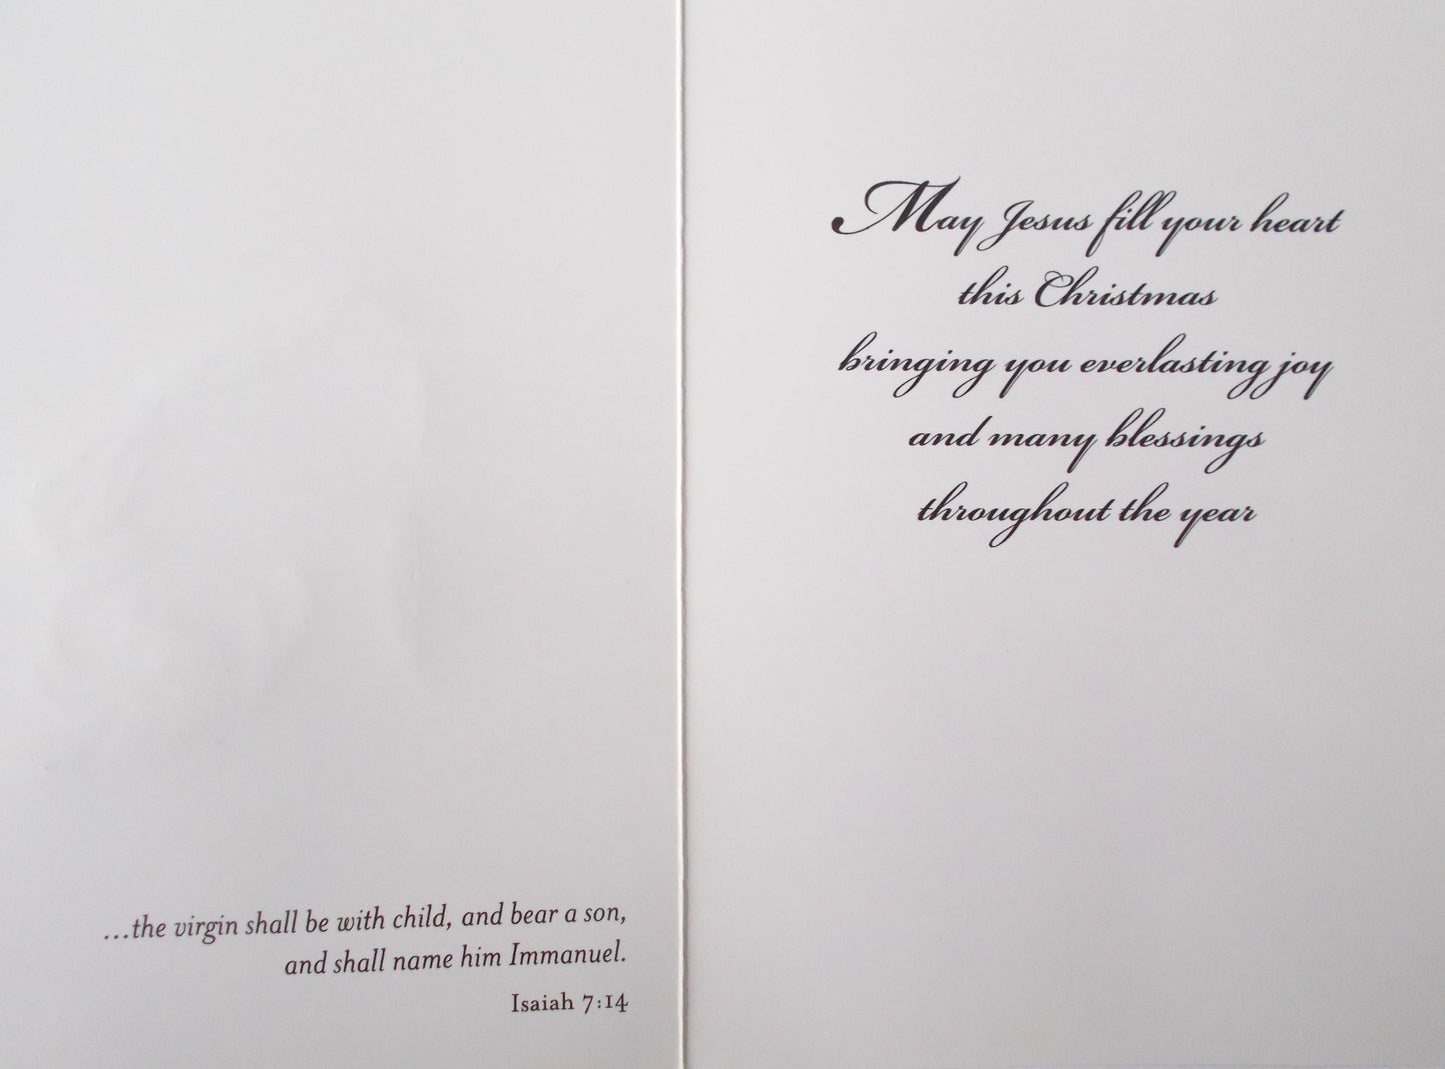 ...the virgin shall be with child, and bear a son,
and shall name him Immanuel.
Isaiah 7:14
May Jesus fill your heart
this Christmas
bringing you everlasting joy
and many blessings
throughout the year